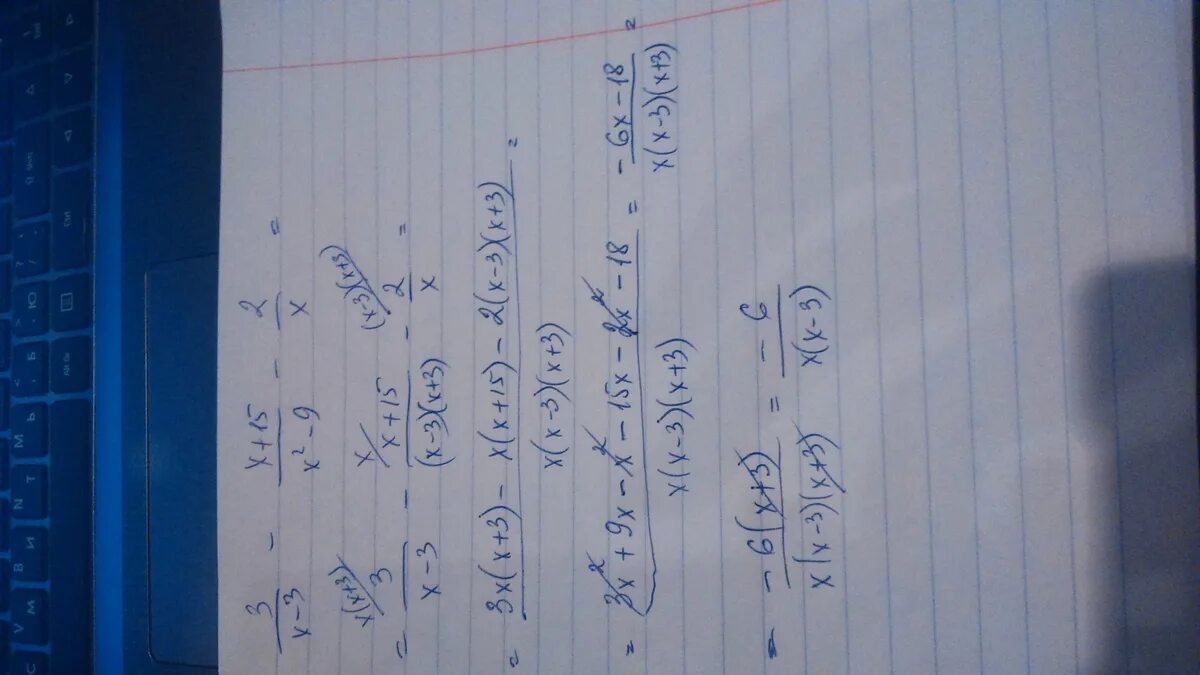 3/(x-3) - (x+15)/(x²-9) - 2/x =
= 3/(x-3) - (x+15)/((x-3)(x+3)) - 2/x =
x(x+3) x (x-3)(x+3)
= (3x(x+3) - x(x+15) - 2(x-3)(x+3))/(x(x-3)(x+3)) =
= (3x² + 9x - x² - 15x - 2x² - 18)/(x(x-3)(x+3)) = (-6x-18)/(x(x-3)(x+3)) =
= -6(x+3)/(x(x-3)(x+3)) = -6/(x(x-3))